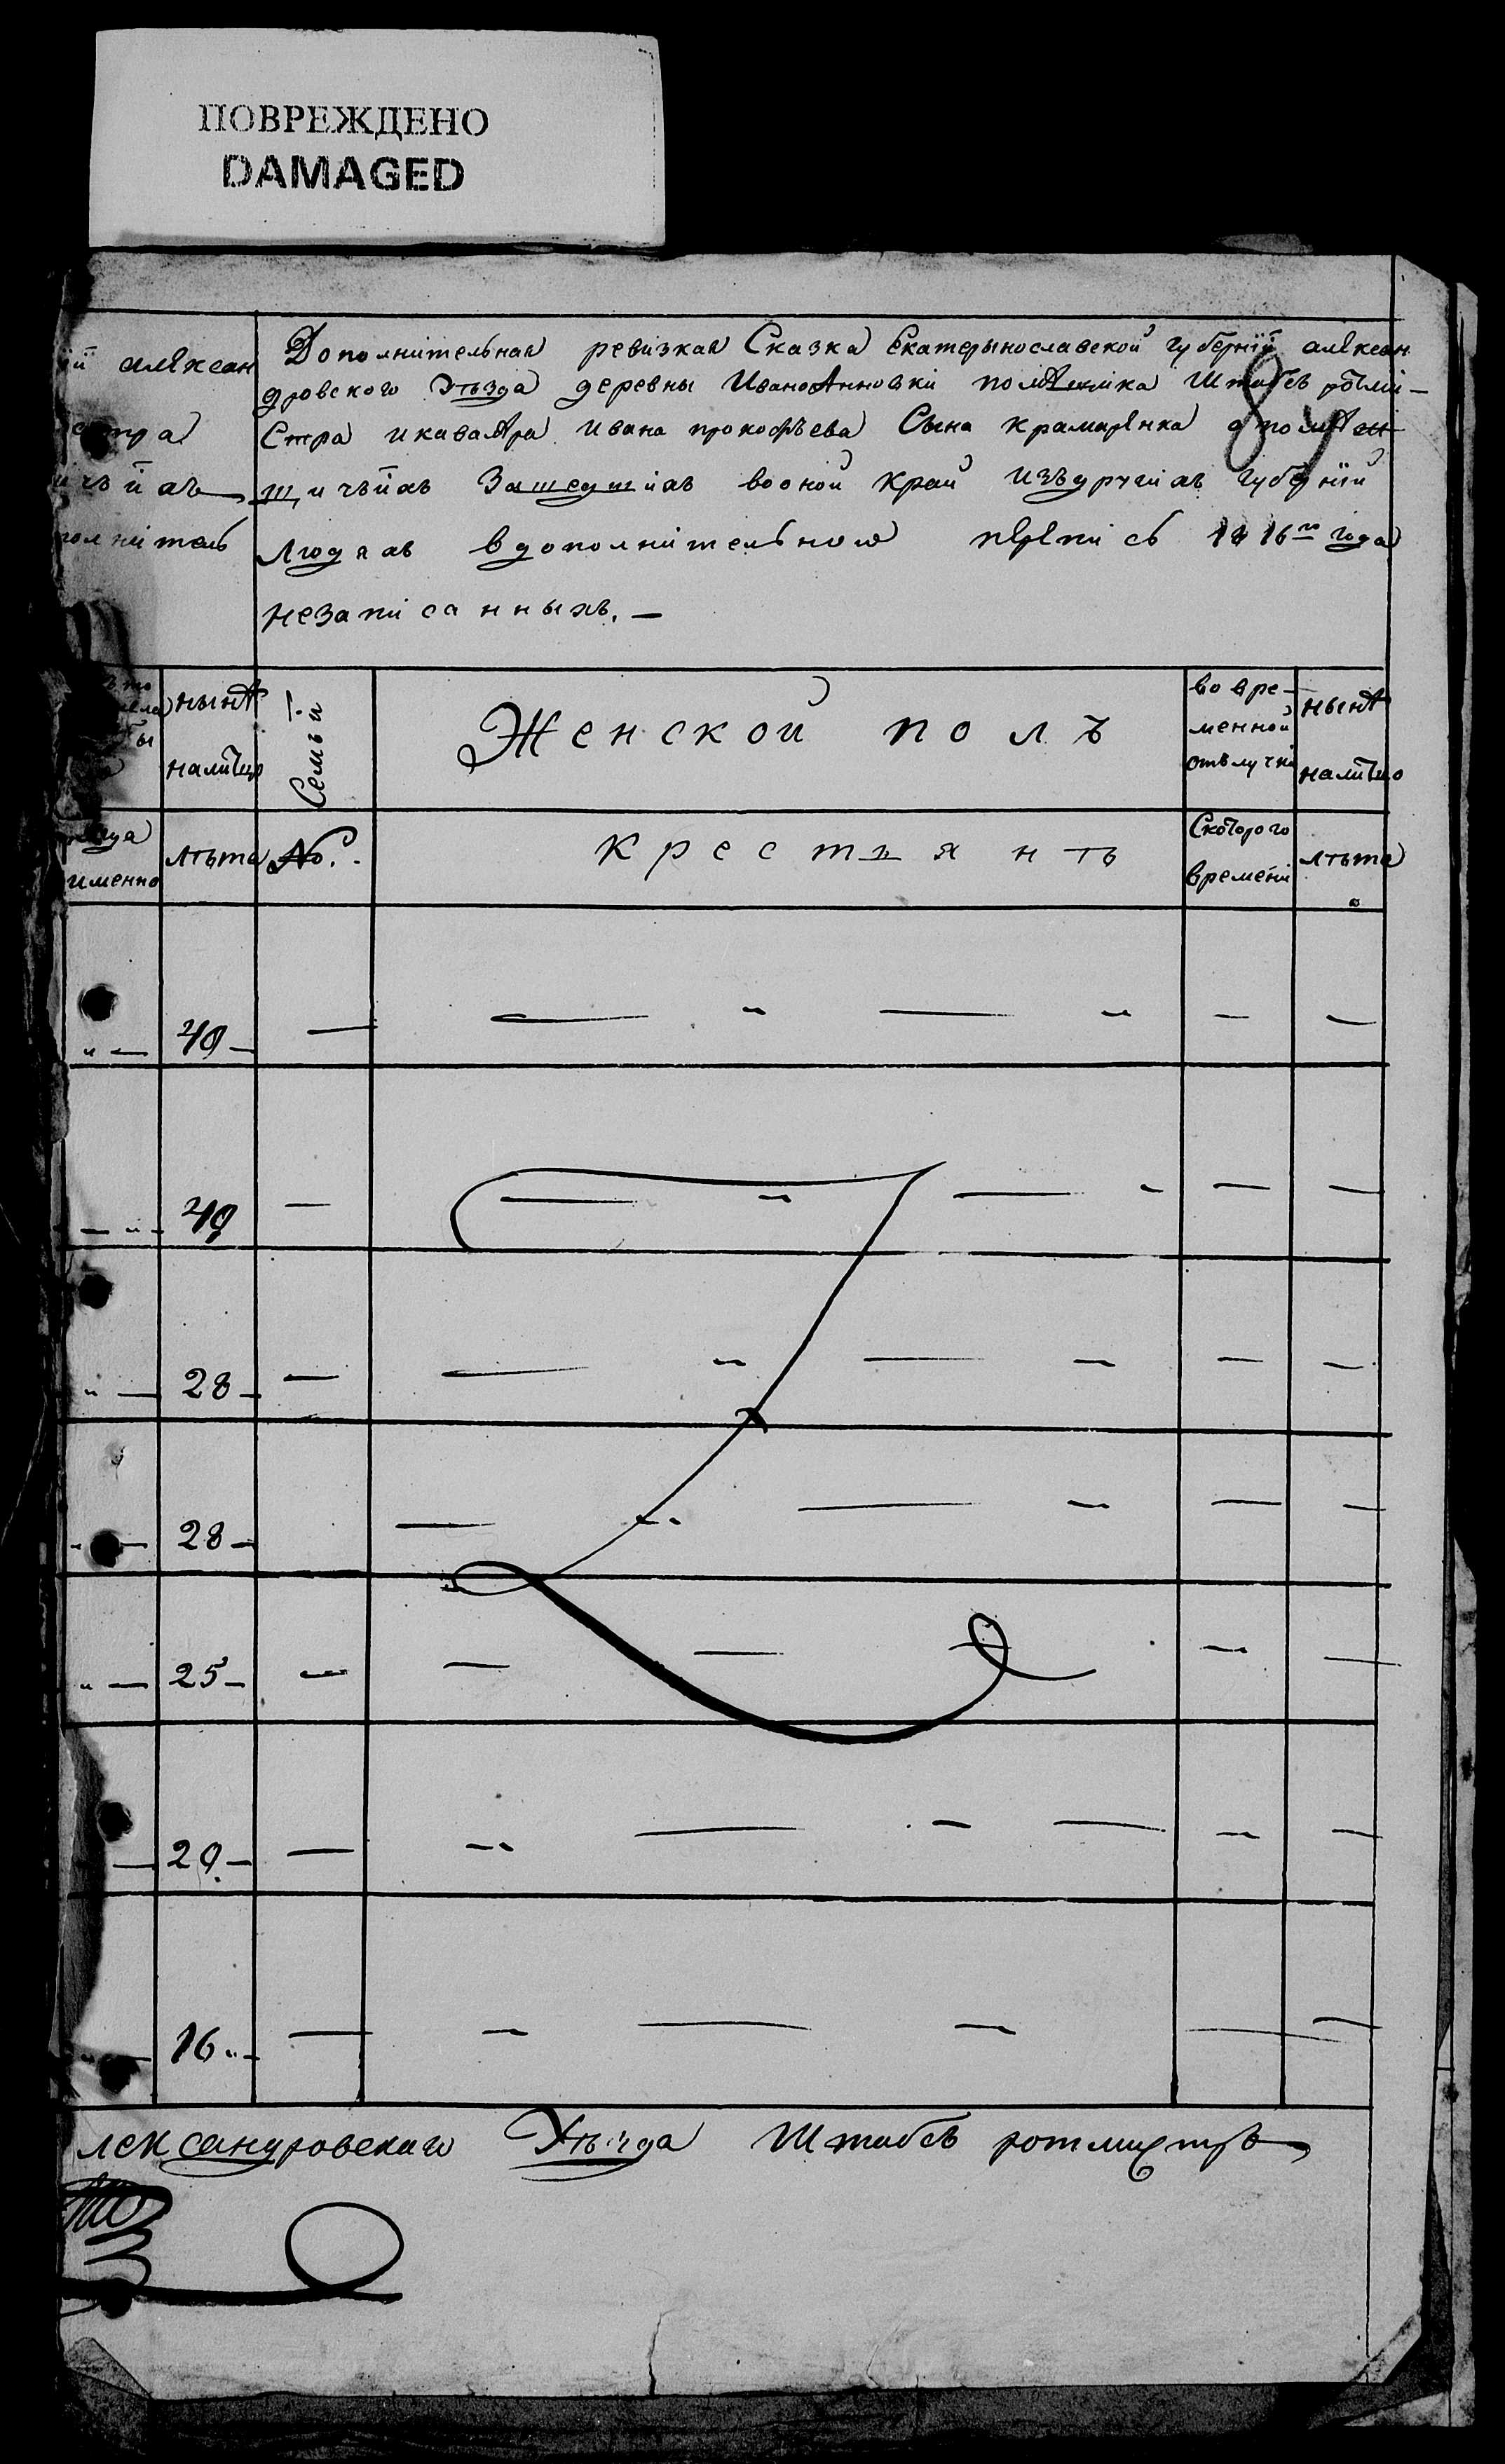 ПОВРЕЖДЕНО
DAMAGED
й алексан
стра
ичьйхъ
полнитель
Дополнительная ревизкая Сказка Екатерынославской губернїй алексан
дровского Уѣзда деревны ИваноАнновки помѣщика Штабсъ ротми-
Стра икавалера Ивана прокофъева Сына крамаренка опомѣщ
щичьйхъ Зашедшихъ воной край изъдругихъ губернїй
Людяхъ вдополнительною перепись 1816го года
незаписанныхъ. —
нынѣ
налицо
Семьй
Женской полъ
во вре-
менной
отълучки
нынѣ
налицо
именно
лѣта
No.
крестьянъ
Скоторого
времени
лѣта
49 —
49
28 —
28 —
25 —
29 —
16 „ —
лександровскаго Уѣзда Штабсъ ротмистръ